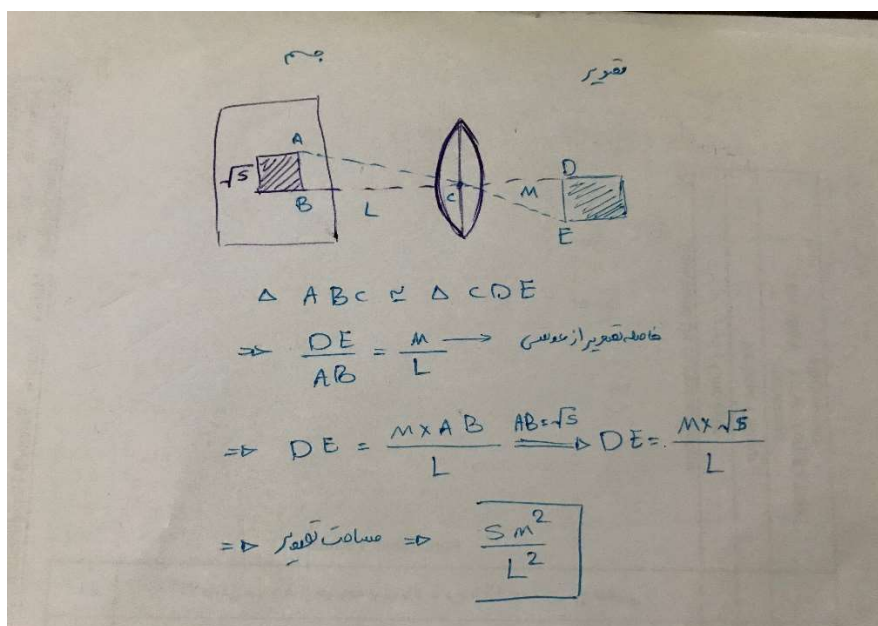 جسم
تصویر
A
√S
B
L
C
M
D
E
△ ABC ≅ △ CDE
⇒ DE/AB = M/L → فاصله تصویر از عدسی
⇒ DE = M×AB/L AB=√S ⇒ DE = M×√S/L
⇒ مساحت تصویر ⇒ SM²/L²